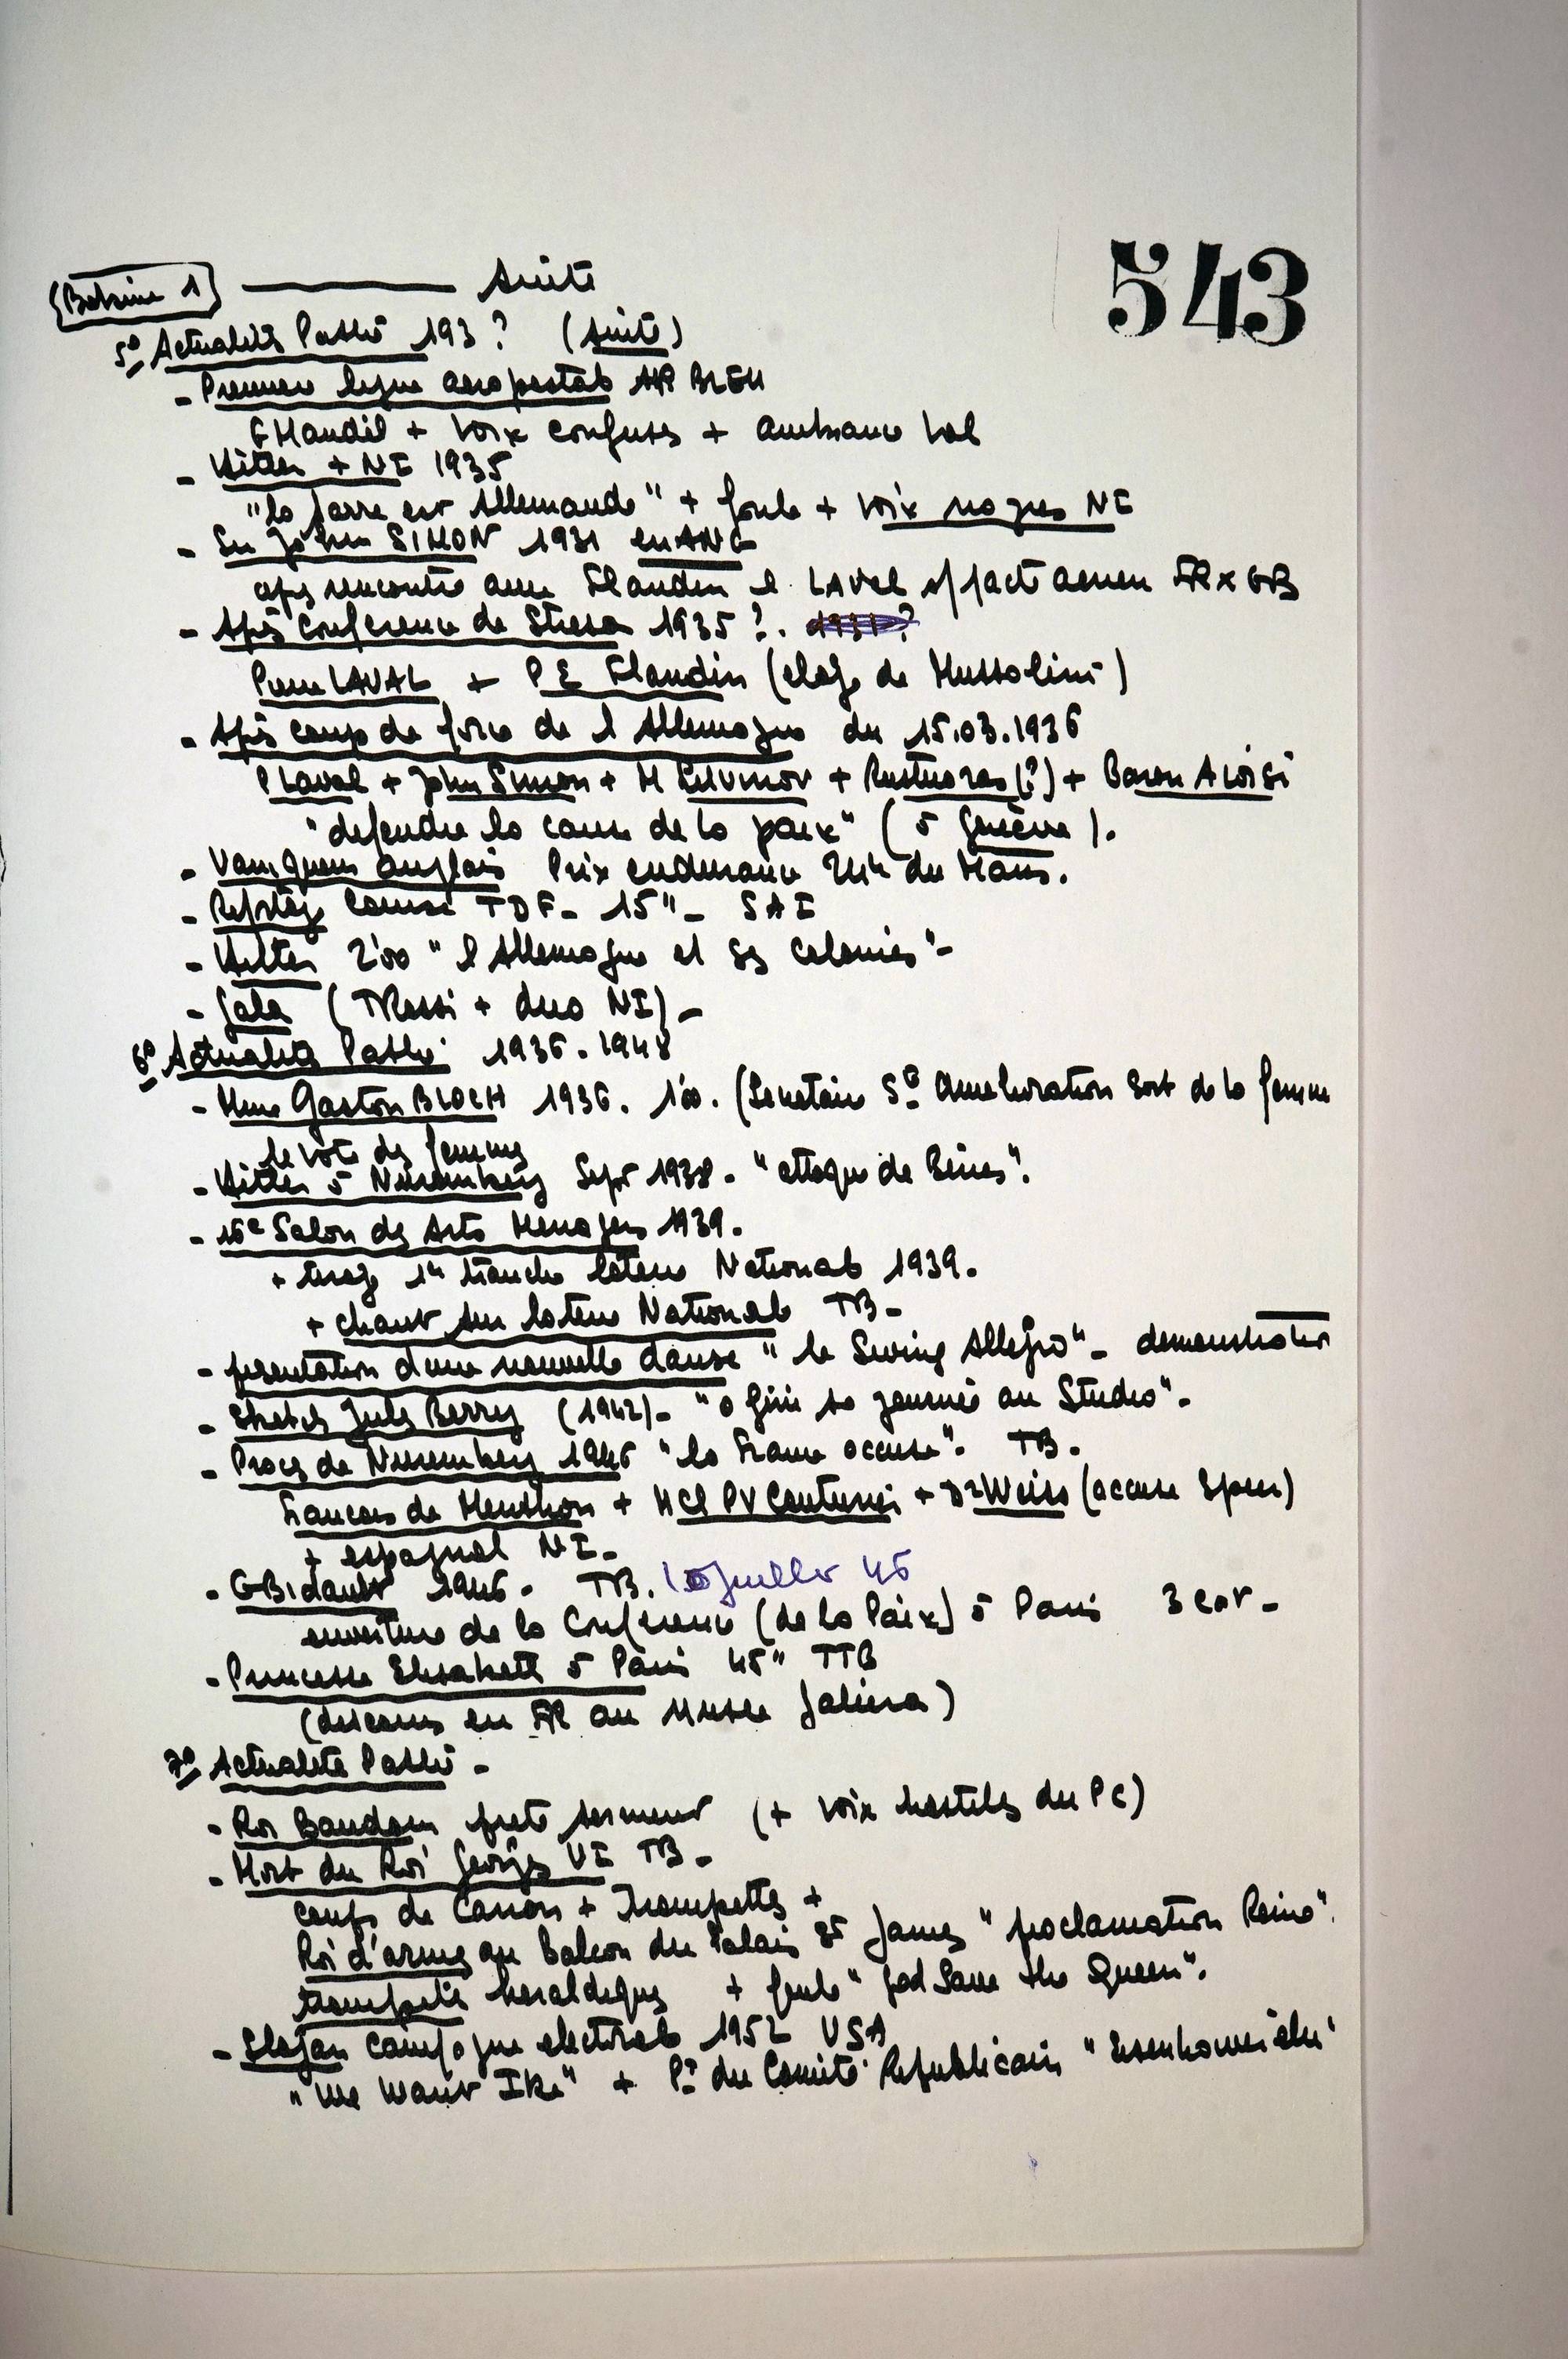 543
Bobine 1 suite
5° Actualités Pathé 193? (suite)
- Premiere ligne aeropostale AIR BLEU
G Mandel + Voix confuses + ambiance
- Hitler + NI 1935
"la Sarre est Allemande" + foule + voix NI
- Sir John SIMON 1931 en ANG
apres rencontre avec Flandin et LAVAL s/pacte aerien FR x GB
- Après conference de Stresa 1935 ?.
Pierre LAVAL + P E Flandin (eloge de Mussolini)
- Après coup de force de l Allemagne du 15.03.1936
P Laval + John Simon + M Litvinov + (?) + Baron Aloisi
"defendre la cause de la paix" (à Genève).
- Vainqueurs anglais Prix endurance 24h du Mans.
- Reportage Course TDF - 15" - SAI
- Hitler 2'00 "l Allemagne et ses colonies" -
- Gala (TRossi + duo NI) -
6° Actualités Pathé 1936.1948
- Mme Gaston BLOCH 1936. 1'00. (Secretaire Sté Amelioration Sort de la femme
le vote des femmes
- Hitler à Nuremberg Sept 1938 - "attaque de Benes".
- 16e Salon des Arts Menagers 1939.
+ tirage 1re tranche loterie Nationale 1939.
+ chant sur loterie Nationale TB -
- presentation d'une nouvelle danse "le Swing Allegro" - demonstration
- Sketch Jules Berry (1942) - "a fini sa journée au Studio" -
- Proces de Nuremberg 1946 "la France accuse". TB.
Francois de Menthon + MCl PV Couturier + Dr Weiss (accuse Speer)
+ espagnol NI -
- GBidault 1946 - TB. Juillet 46
ouverture de la Conference (de la Paix) à Paris 3 ext -
- Princesse Elisabeth à Paris 45" TTB
(discours en FR au Musee Galiera)
7° Actualité Pathé -
- Roi Baudoin prete serment (+ voix hostiles du PC)
- Mort du Roi Georges VI TB -
coups de Canon + Trompettes +
Roi d'armes au Balcon du Palais St James "proclamation Reine".
trompette heraldiques + foule "God Save the Queen".
- Slogan campagne electorale 1952 USA
"We want Ike" + Pt du Comité Republicain "Eisenhower élu"